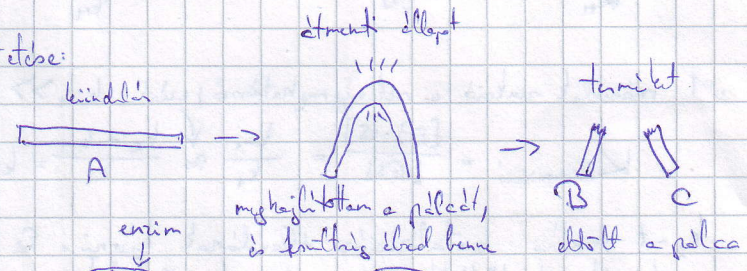 átmeneti állapot
etése:
kiindulás
termékek
A
B
C
meghajlítottam a pálcát,
és feszültség ébred benne
eltört a pálca
enzim